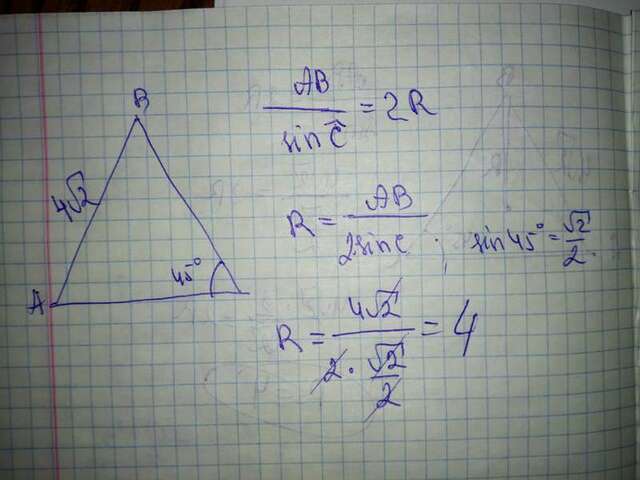 B
4√2
A
45°
AB / sin Ĉ = 2R
R = AB / 2 sin C . sin 45° = √2 / 2 .
R = 4√2 / 2 · √2 / 2 = 4